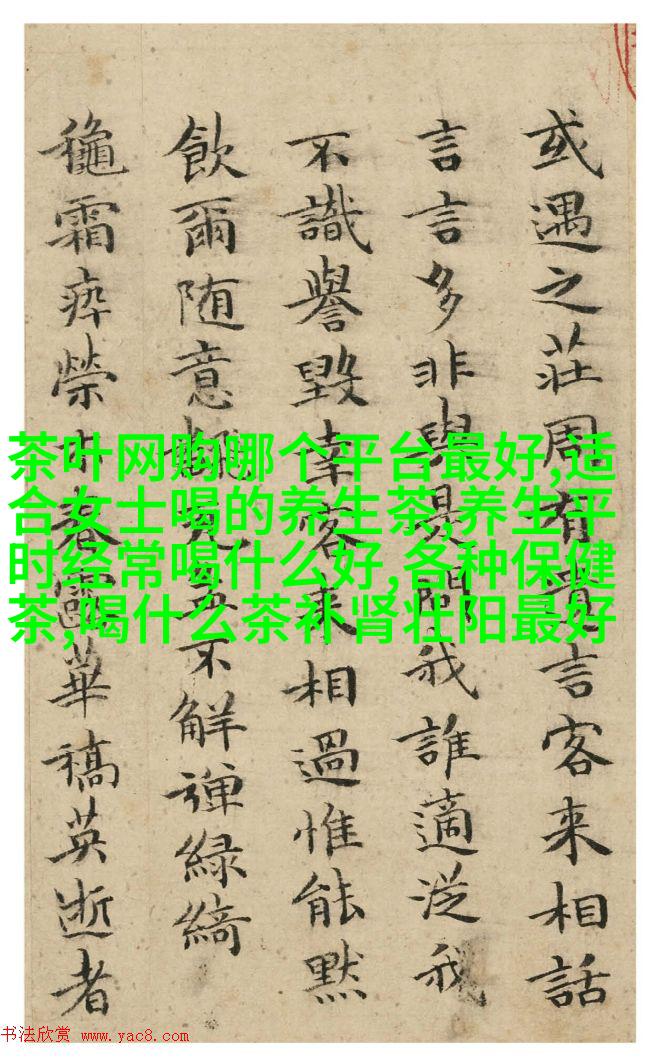 或遇之莊周有貴言客来相話
言言多非與是問我誰適從我
不識譽毀幸客来相過惟能默
飲爾随意吾不觧弾緑綺
穐霜瘁榮木春露華稿英逝者
茶叶网购哪个平台最好,适
合女士喝的养生茶,养生平
时经常喝什么好,各种保健
茶,喝什么茶补肾壮阳最好
书法欣赏 www.yac8.com